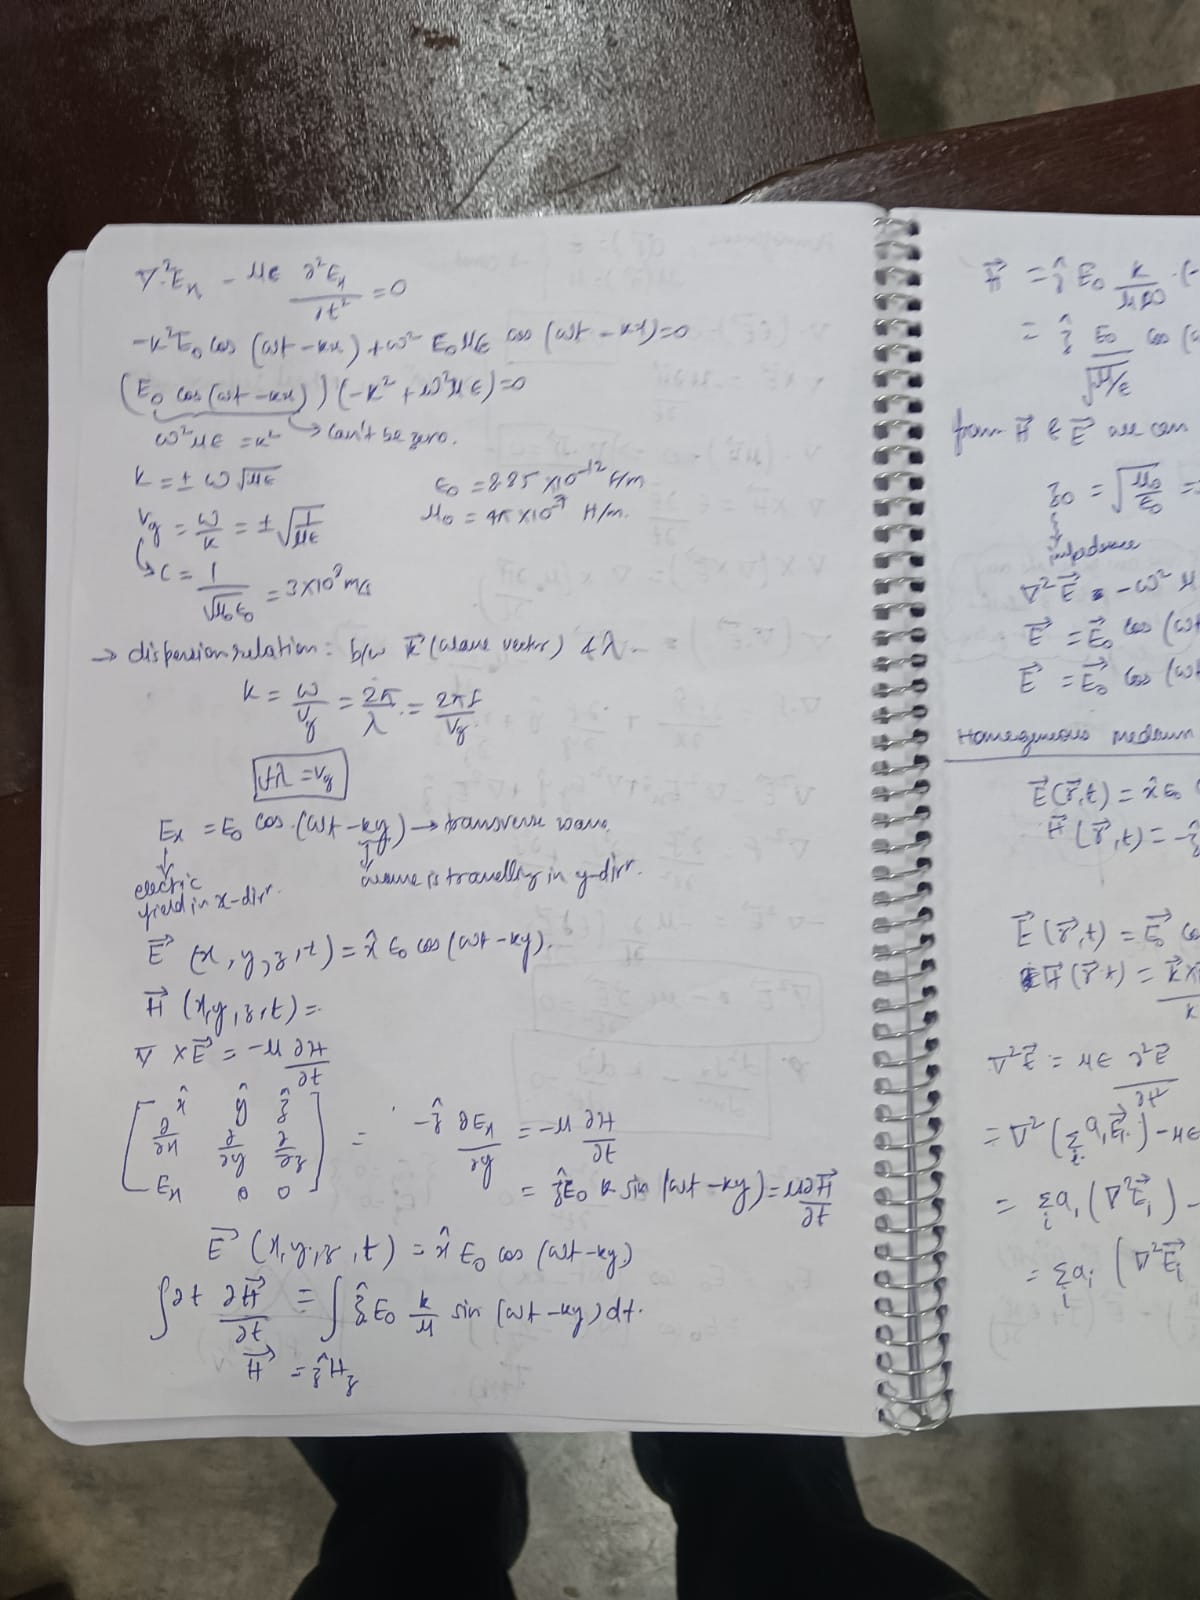 ∇²Eₓ - με ∂²Eₓ/∂t² = 0
-k²E₀ cos (ωt - kx) + ω² E₀με cos (ωt - kx) = 0
(E₀ cos(ωt - kx)) (-k² + ω²με) = 0
ω²με = k² → can't be zero.
k = ± ω√με
ε₀ = 8.85 × 10⁻¹² F/m
μ₀ = 4π × 10⁻⁷ H/m.
= ω/k = ± √1/με
↳ c = 1/√μ₀ε₀ = 3×10⁸ m/s
→ dispersion relation: b/w k⃗ (wave vector) & λ
= 2π/λ =
fλ =
Eₓ = E₀ cos (ωt - ky) → transverse wave.
↓ electric field in x-dirⁿ.
↓ wave is travelling in y-dirⁿ.
E⃗ (x, y, z, t) = x̂ E₀ cos (ωt - ky).
H⃗ (x, y, z, t) =
∇ × E⃗ = -μ ∂H/∂t
[x̂ ŷ ẑ
∂/∂x ∂/∂y ∂/∂z
Eₓ 0 0] = -ẑ ∂Eₓ/∂y = -μ ∂H/∂t
= ẑE₀ k sin (ωt - ky) = μ∂H⃗/∂t
E⃗ (x, y, z, t) = x̂ E₀ cos (ωt - ky)
∫∂t ∂H⃗/∂t = ∫ ẑ E₀ k/μ sin (ωt - ky) dt.
H⃗ = ẑH
= ẑ E₀/√μ/ε cos
from H⃗ & E⃗ we can
= √μ₀/ε₀ =
impedance
∇²E⃗ = -ω² μ
E⃗ = E⃗₀ cos (ωt
E⃗ = E⃗₀ cos (ωt
Homogeneous medium
E⃗(r⃗,t) = x̂ E₀
H⃗ (r⃗,t) =
E⃗ (r⃗,t) = E⃗₀ co
H⃗ (r⃗,t) =
∇²E⃗ = με ∂²E⃗/∂t²
= ∇² (Σᵢ aᵢE⃗ᵢ) - με
= Σᵢ aᵢ (∇²E⃗ᵢ) -
= Σᵢ aᵢ (∇²E⃗ᵢ